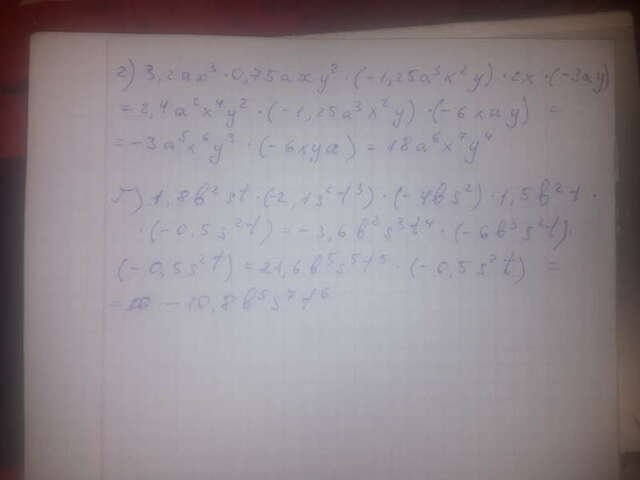 г) 3,2ax³ · 0,75axy² · (-1,25a³x²y) · 2x · (-3ay)
= 2,4a²x⁴y² · (-1,25a³x²y) · (-6xay) =
= -3a⁵x⁶y³ · (-6xya) = 18a⁶x⁷y⁴
1,8b²st · (-2,1s²t³) · (-4bs²) · 1,5b²t ·
· (-0,5s²t) = -3,6b²s³t⁴ · (-6b³s²t) ·
(-0,5s²t) = 21,6b⁵s⁵t⁵ · (-0,5s²t) =
= -10,8b⁵s⁷t⁶